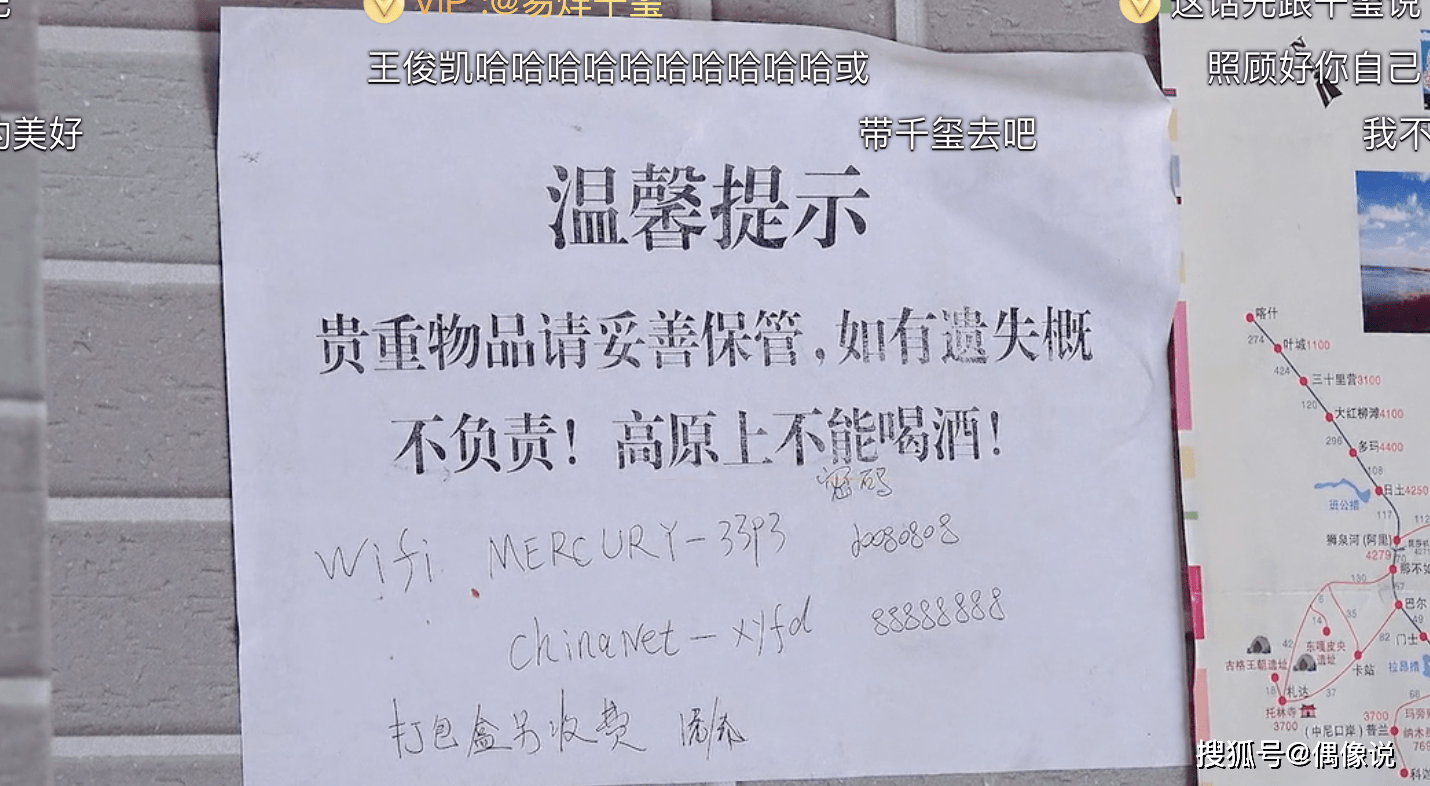 VIP :@易烊千玺
这话先跟千玺说
王俊凯哈哈哈哈哈哈哈哈哈哈或
照顾好你自己
的美好
带千玺去吧
我不
温馨提示
贵重物品请妥善保管,如有遗失概
不负责!高原上不能喝酒!
密码
Wifi MERCURY-33P3 20080808
ChinaNet-xyfd 88888888
打包盒另收费
喀什
274
叶城1100
424
三十里营3100
120
大红柳滩4100
296
多玛4400
108
日土4250
班公措
117
112
狮泉河(阿里)
4279
70
那不如
130
57
巴尔
6
35
49
14
82
门士
42
东嘎皮央
遗址
古格王朝遗址
卡站
拉昂措
18
札达
37
68
托林寺
3700
3700
玛旁
(中尼口岸)普兰
纳木
769
科迦
搜狐号@偶像说